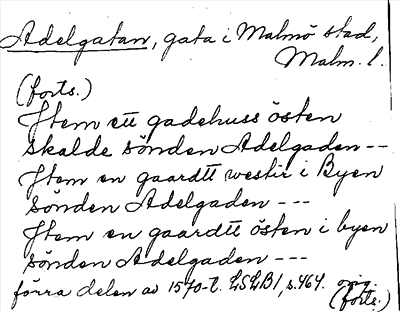 Adelgatan, gata i Malmö stad,
Malm. l.
(forts.)
Item ett gadehuss östen
skalde sönden Adelgaden --
Item en gaardtt westir i Byen
sönden Adelgaden ---
Item en gaardtt östen i byen
sönden Adelgaden ---
förra delen av 1570-t. LSLB1, s. 464.
(forts.)